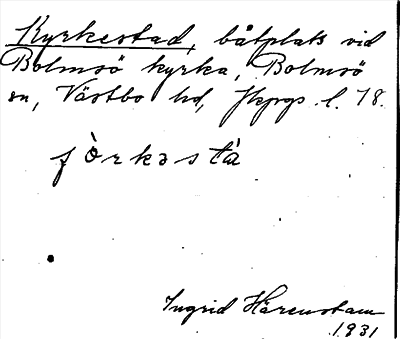 Kyrkestad, båtplats vid
Bolmsö kyrka, Bolmsö
sn, Västbo hd, Jkpgs l. 78.
fòrkəstà
Ingrid Härenstam
1931